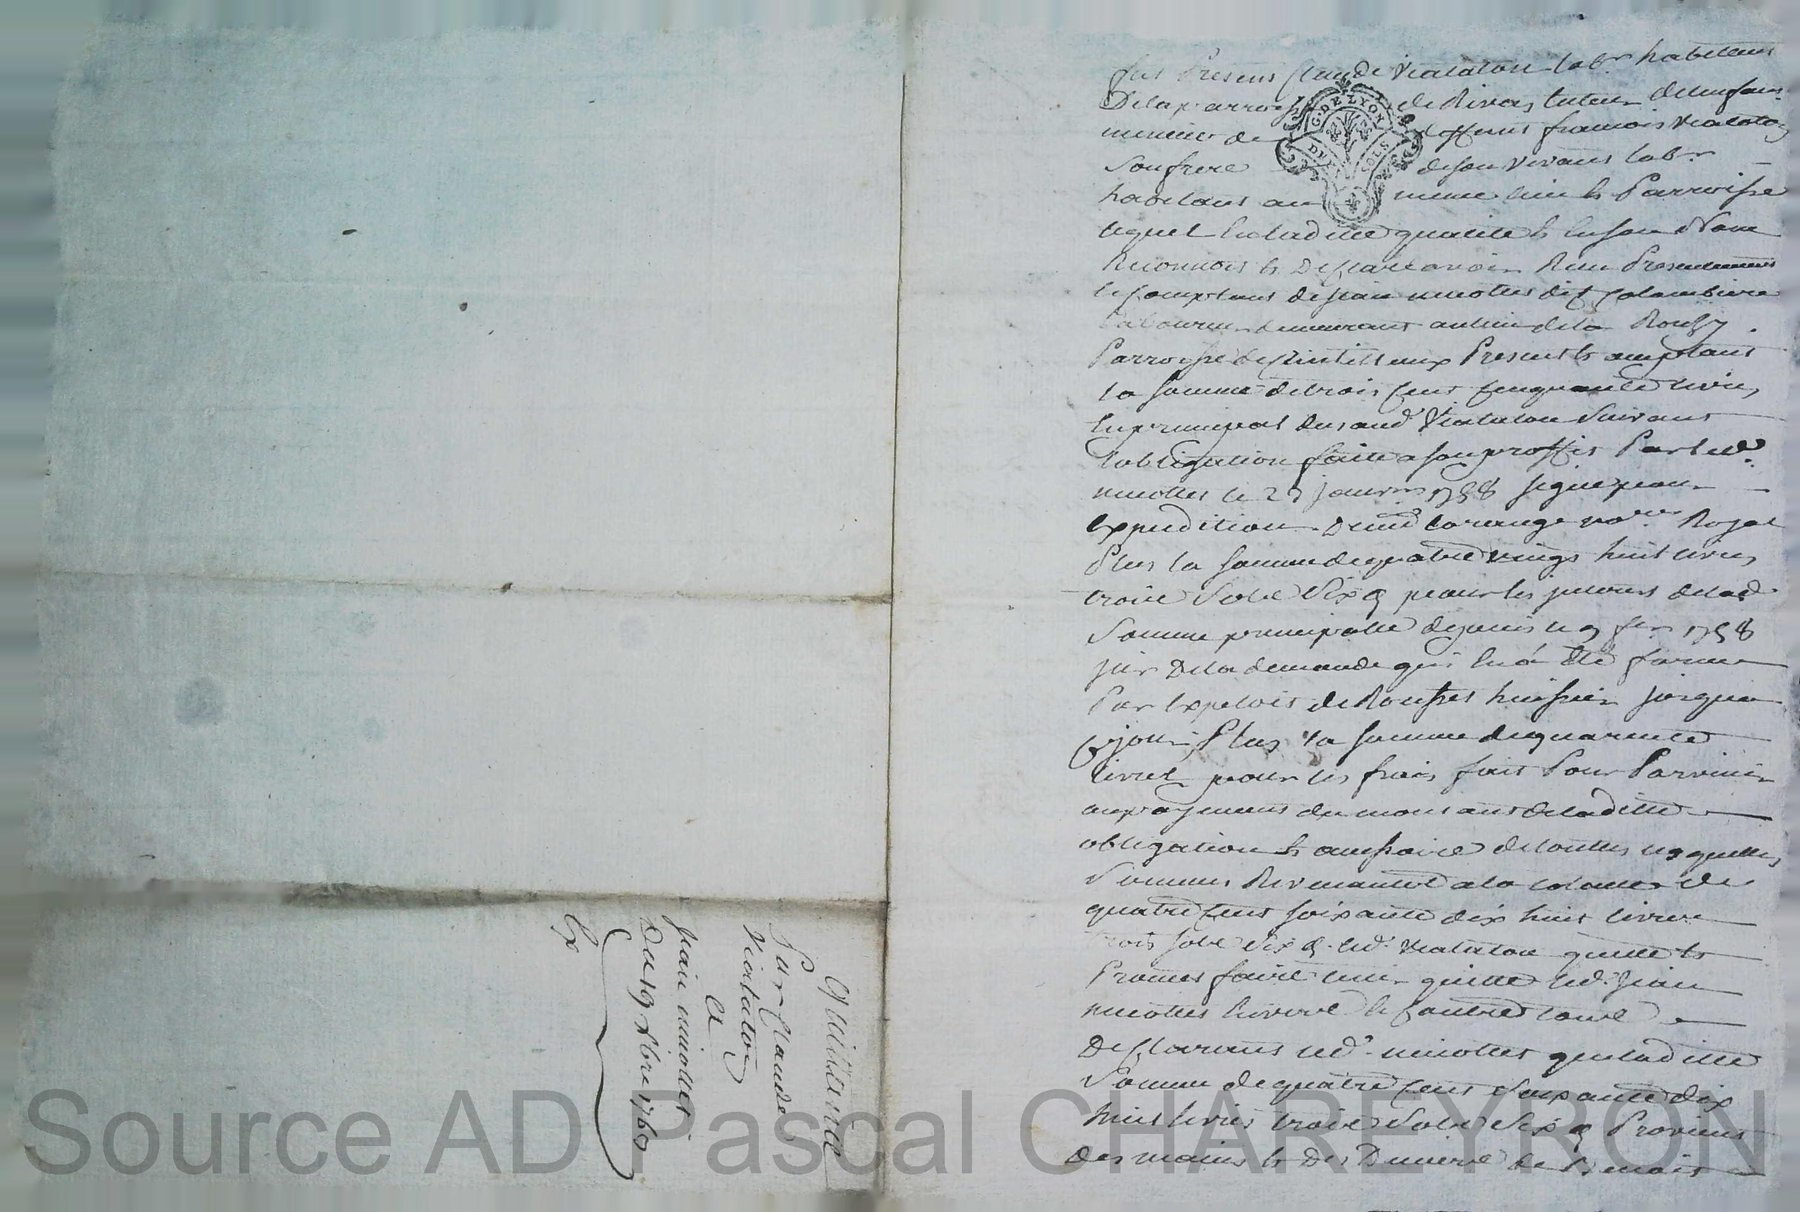 fut Present Claude Vialaton lab.r habitant
De la parroisse de Rivas tuteur des enfans
mineur de deffunt francois Vialaton
G. DE LYON
DEUX SOLS
Son frere de son vivant lab.r
habitant au meme lieu & Parroisse
lequel en ladite qualité & en son Nom
Reconnoit & Declare avoir Recu Presentement
& Comptant de jean miottet dit Colombier
Laboureur demeurant au lieu de la
Parroisse de Present & acceptant
la somme de trois Cent Cinquante livres
en principal dus aud.t Vialaton Suivant
l'obligation faite a son proffit Par led.
miottet le janvier 1758 signé pour
expedition Royal
Plus la somme de quatre vingt huit livres
trois Sols Six d pour les interets de lad.
Somme principalle depuis le 9 1758
jour De la demande qui lui a été formée
Par Exploit de huissier jusqua
Ce jour Plus la somme de quarente
livres pour les frais fait Pour Parvenir
au payement du montant de laditte
obligation & de touttes lesquelles
Sommes Revenantes a la totalle de
quatre Cent soixante dix huit livres
trois sols six d. led. Vialaton quitte &
Promet faire tenir quitte led. jean
miottet envers & Contre tous
Declarant led. miottet que laditte
Somme de quatre Cent Soixante dix
huit livres trois Sols Six d Provient
des mains & Des Deniers de
Quittance
Par Claude
Vialaton
A
jean miottet
Du 19 8bre 1760
Ex
Source AD Pascal CHAREYRON